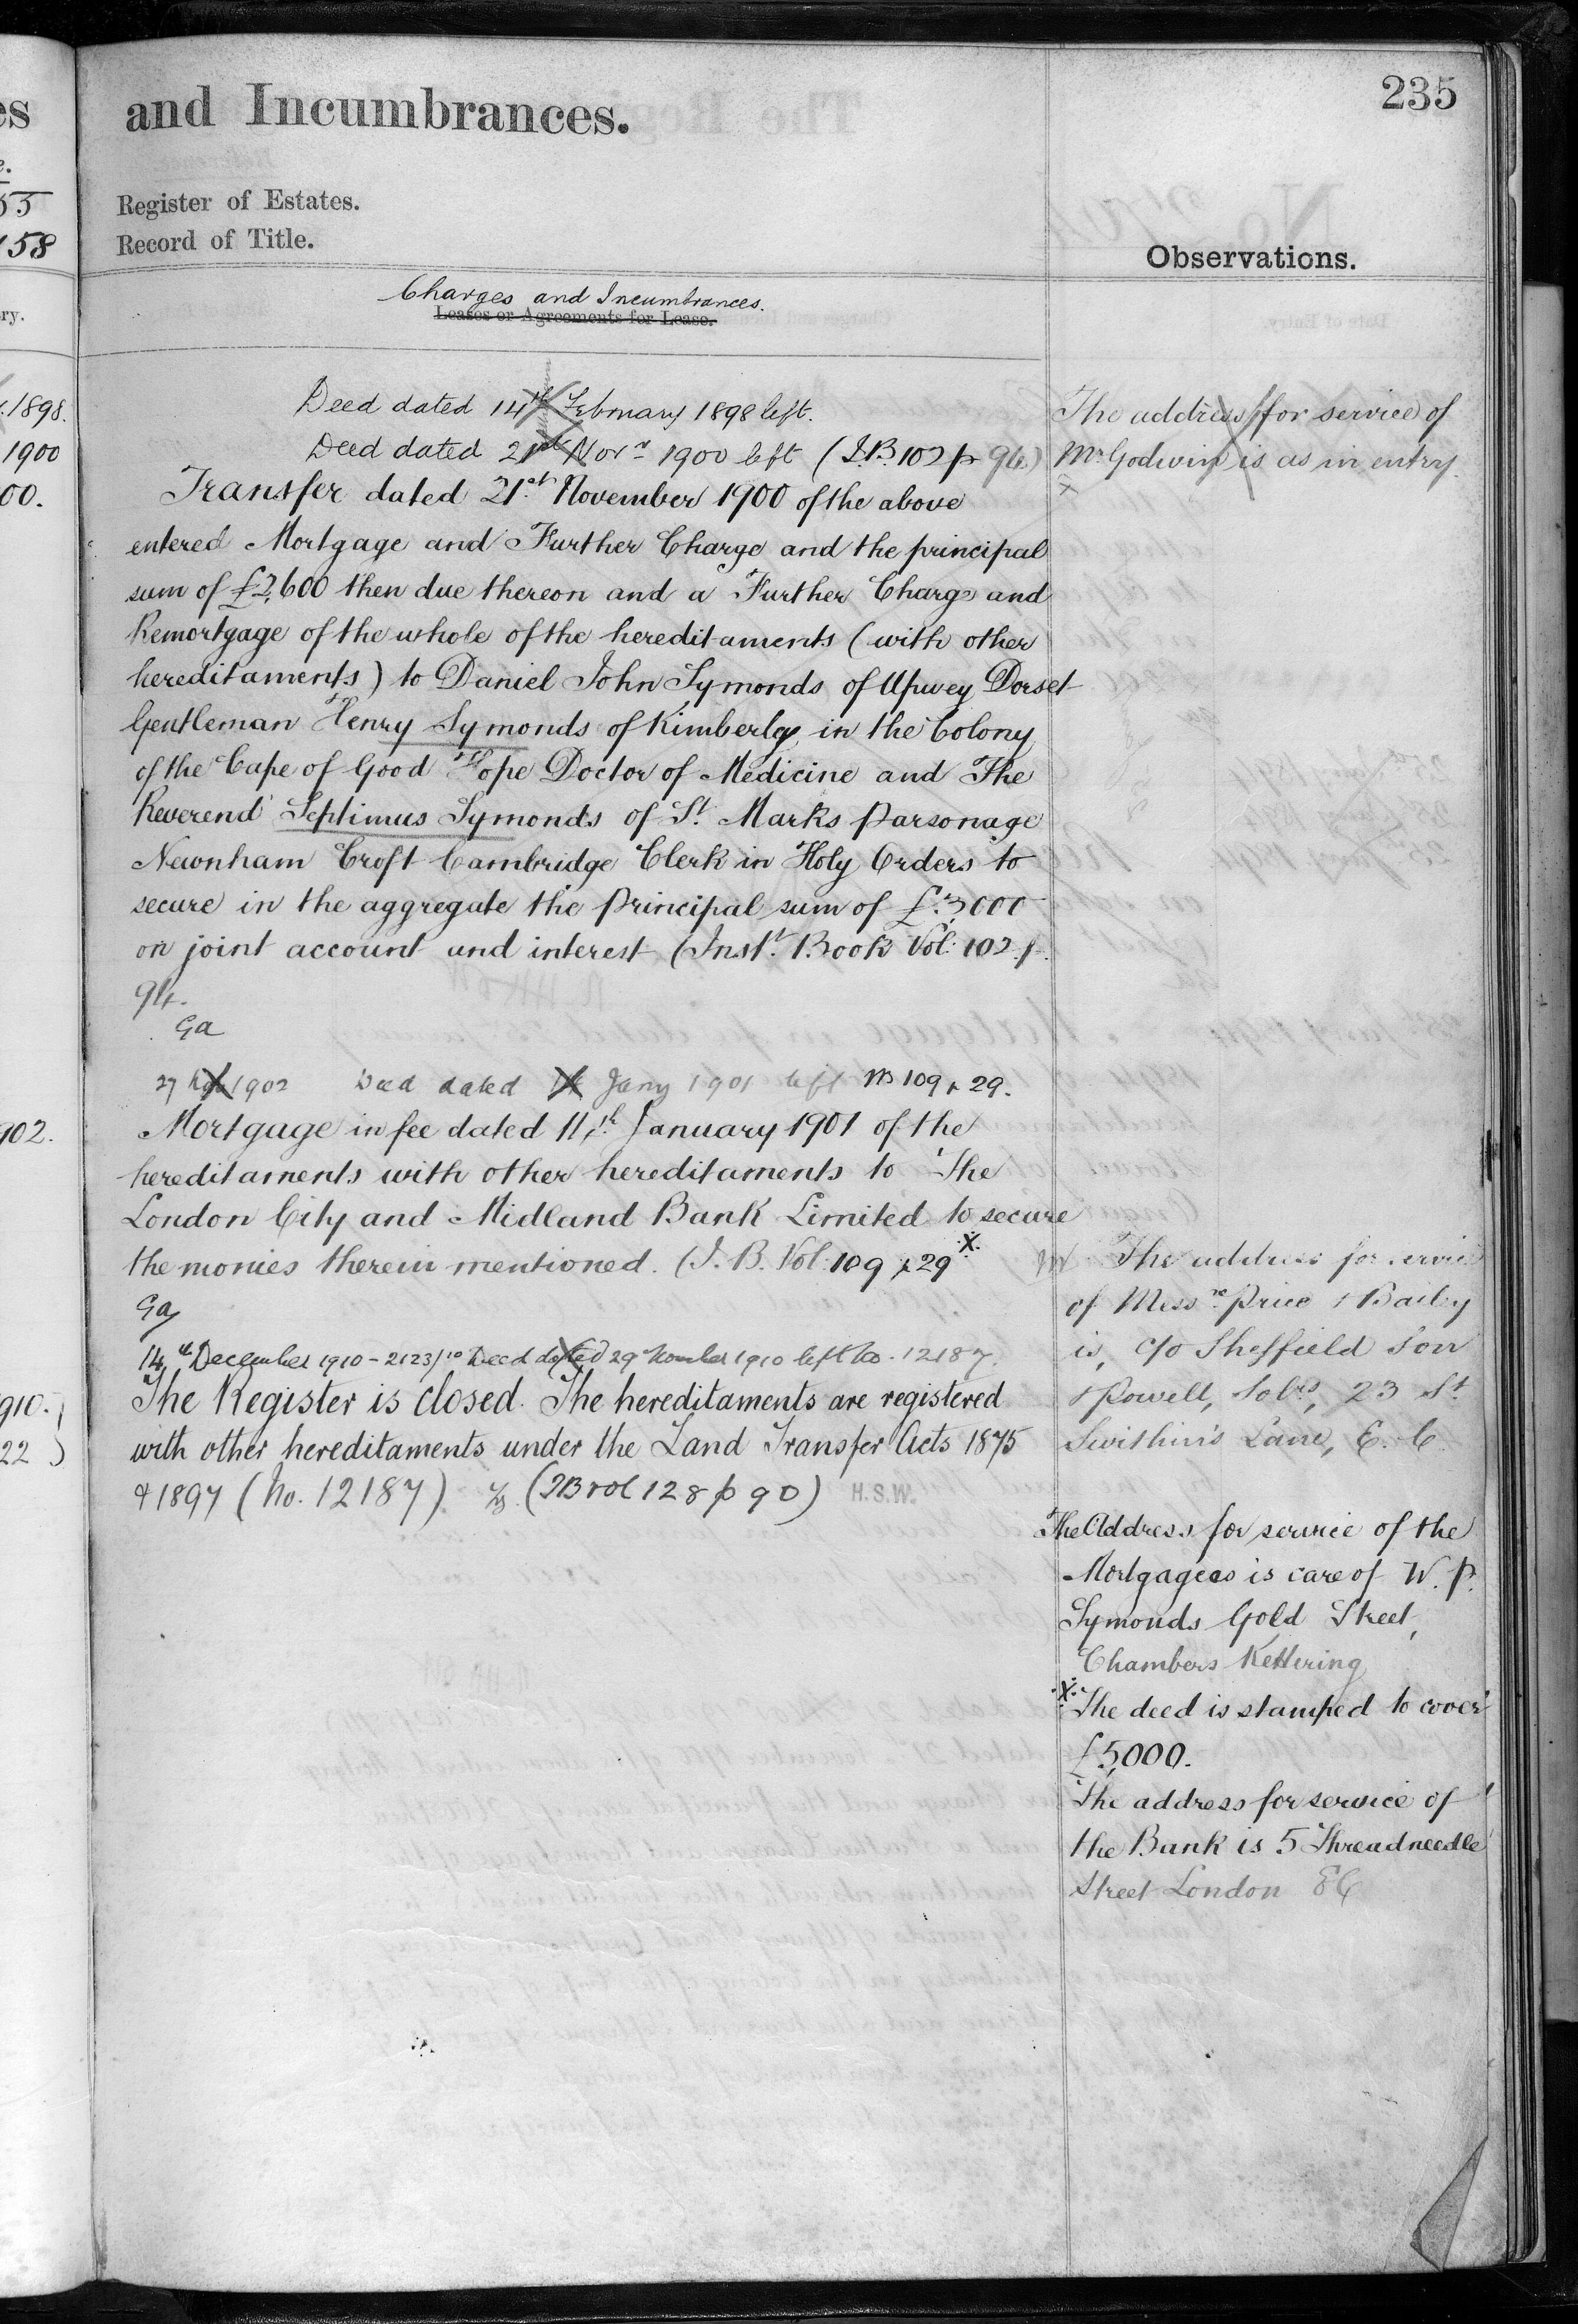 235
and Incumbrances.
Register of Estates.
Record of Title.
Observations.
Charges and Incumbrances.
Leases or Agreements for Lease.
Deed dated 14th February 1898 left.
Deed dated 21st Novr 1900 left (I.B. 102 p 94.)
Transfer dated 21st November 1900 of the above
entered Mortgage and Further Charge and the principal
sum of £2,600 then due thereon and a Further Charge and
Remortgage of the whole of the hereditaments (with other
hereditaments) to Daniel John Symonds of Upwey Dorset
Gentleman Henry Symonds of Kimberley in the Colony
of the Cape of Good Hope Doctor of Medicine and The
Reverend Septimus Symonds of St. Marks Parsonage
Newnham Croft Cambridge Clerk in Holy Orders to
secure in the aggregate the principal sum of £3,000
on joint account and interest (Instt. Book Vol: 102 p.
94.
Ga
27 1902 Deed dated Jany 1901 left IB 109 p 29.
Mortgage in fee dated 11th January 1901 of the
hereditaments with other hereditaments to The
London City and Midland Bank Limited to secure
the monies therein mentioned. (I. B. Vol: 109 p 29 X
Ga
14th December 1910 - 2123/10 Deed dated 29 November 1910 left No. 12187.
The Register is closed. The hereditaments are registered
with other hereditaments under the Land Transfer Acts 1875
& 1897 (No. 12187) (IB vol 128 p 90) H.S.W.
The address for service of
Mr Godwin is as in entry.
x
The address for service
of Messrs. Price & Bailey
is, c/o Sheffield Son
& Powell, Solrs, 23 St
Swithin's Lane, E.C.
The Address for service of the
Mortgagees is care of W. P.
Symonds Gold Street,
Chambers Kettering
X The deed is stamped to cover
£5,000.
The address for service of
the Bank is 5 Threadneedle
Street London EC
es
e.
55
158
ry.
.1898.
1900
00.
902.
1910.
22 )